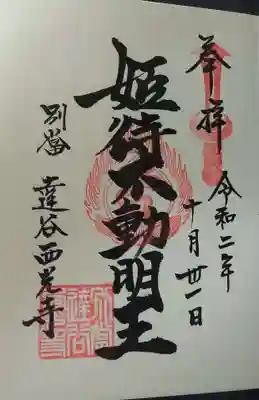 奉拝
令和二年
十月卅一日
姫待不動明王
別當
達谷西光寺